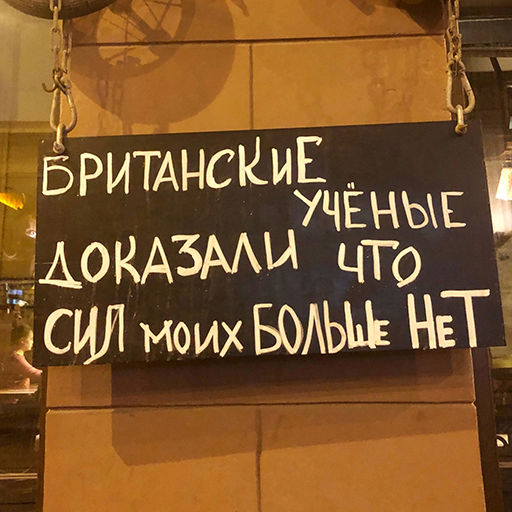 БРИТАНСКИЕ
УЧЁНЫЕ
ДОКАЗАЛИ ЧТО
СИЛ МОИХ БОЛЬШЕ НЕТ